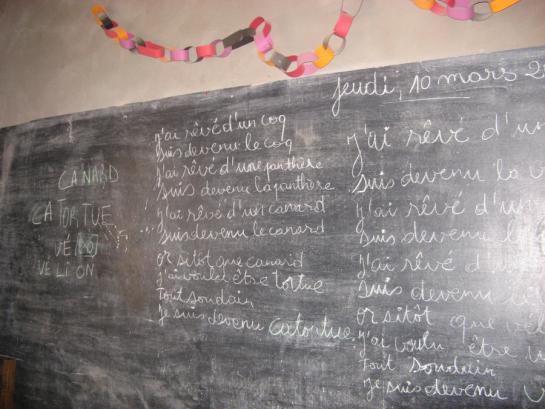 jeudi, 10 mars
CANARD
CATORTUE
VÉ LO
VÉ LI ON
j'ai rêvé d'un coq
suis devenu le coq
j'ai rêvé d'une panthère
suis devenu la panthère
j'ai rêvé d'un canard
suis devenu le canard
or sitôt que canard
j'ai voulu être tortue
tout soudain
je suis devenu catortue.
j'ai rêvé d'un
suis devenu la
j'ai rêvé d'un
suis devenu le
j'ai rêvé d'
suis devenu
or sitôt que vél
j'ai voulu être
tout soudain
je suis devenu